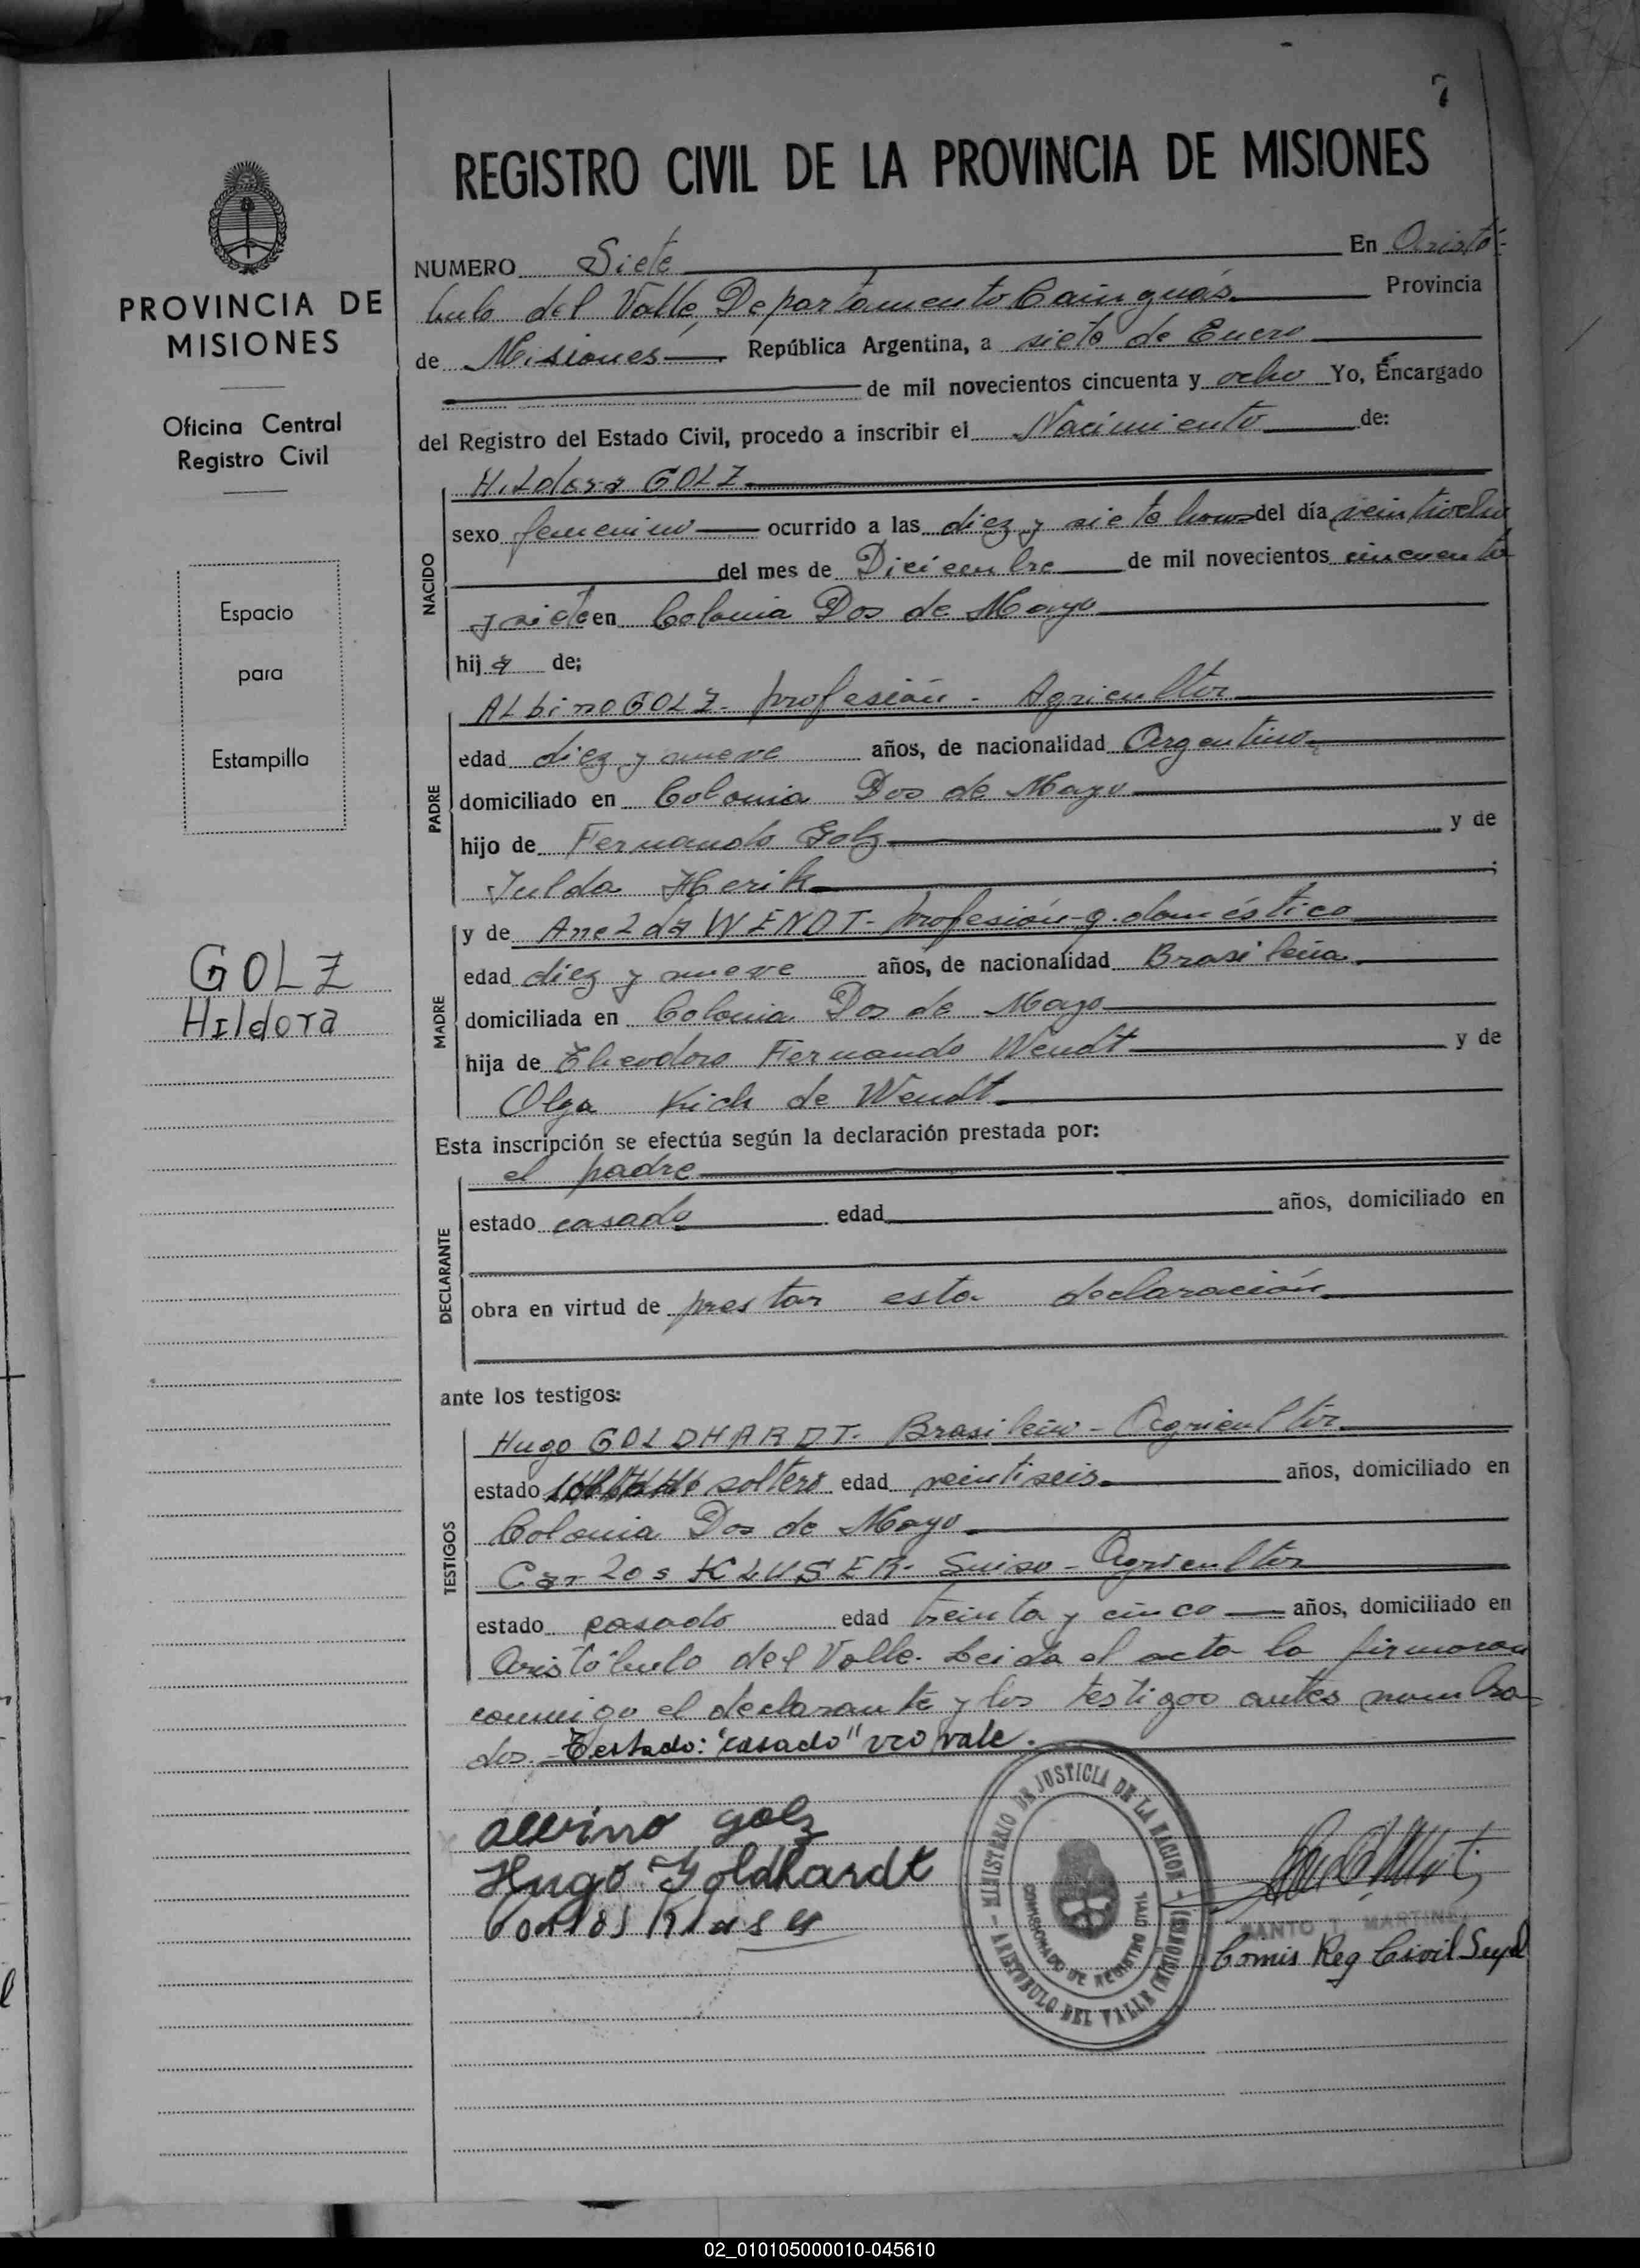 7
REGISTRO CIVIL DE LA PROVINCIA DE MISIONES
NUMERO Siete En Aristó-
bulo del Valle, Departamento Cainguás Provincia
de Misiones República Argentina, a siete de Enero
de mil novecientos cincuenta y ocho Yo, Encargado
del Registro del Estado Civil, procedo a inscribir el Nacimiento de:
HILdora GOLZ
sexo femenino ocurrido a las diez y siete horas del día veintiocho
del mes de Diciembre de mil novecientos cincuenta
y siete en Colonia Dos de Mayo
hija de;
NACIDO
ALbino GOLZ- profesión - Agricultor
edad diez y nueve años, de nacionalidad Argentino
domiciliado en Colonia Dos de Mayo
hijo de Fernando Golz y de
Julda
PADRE
y de WENDT- profesión-q. doméstico
edad diez y nueve años, de nacionalidad Brasileña
domiciliada en Colonia Dos de Mayo
hija de Theodoro Fernando Wendt y de
Olga Kich de Wendt
MADRE
Esta inscripción se efectúa según la declaración prestada por:
el padre
estado casado edad años, domiciliado en
obra en virtud de prestar esta declaración
DECLARANTE
ante los testigos:
Hugo GOLDHARDT- Brasileño - Agricultor
estado soltero edad veintiseis años, domiciliado en
Colonia Dos de Mayo
Carlos KLUSER- Suizo - Agricultor
estado casado edad treinta y cinco años, domiciliado en
Aristóbulo del Valle. Leida el acta la firmaron
conmigo el declarante y los testigos antes nombra-
dos. - Testado: "casado" no vale.
TESTIGOS
Alvino Golz
Hugo Goldhardt
Carlos Kluser
MINISTERIO DE JUSTICIA DE LA NACION - ARISTOBULO DEL VALLE (MISIONES) -
COMISIONADO DE REGISTRO CIVIL
SANTO T. MARTINEZ
Comis Reg Civil Supl
PROVINCIA DE
MISIONES
Oficina Central
Registro Civil
Espacio
para
Estampilla
GOLZ
Hildora
02_010105000010-045610